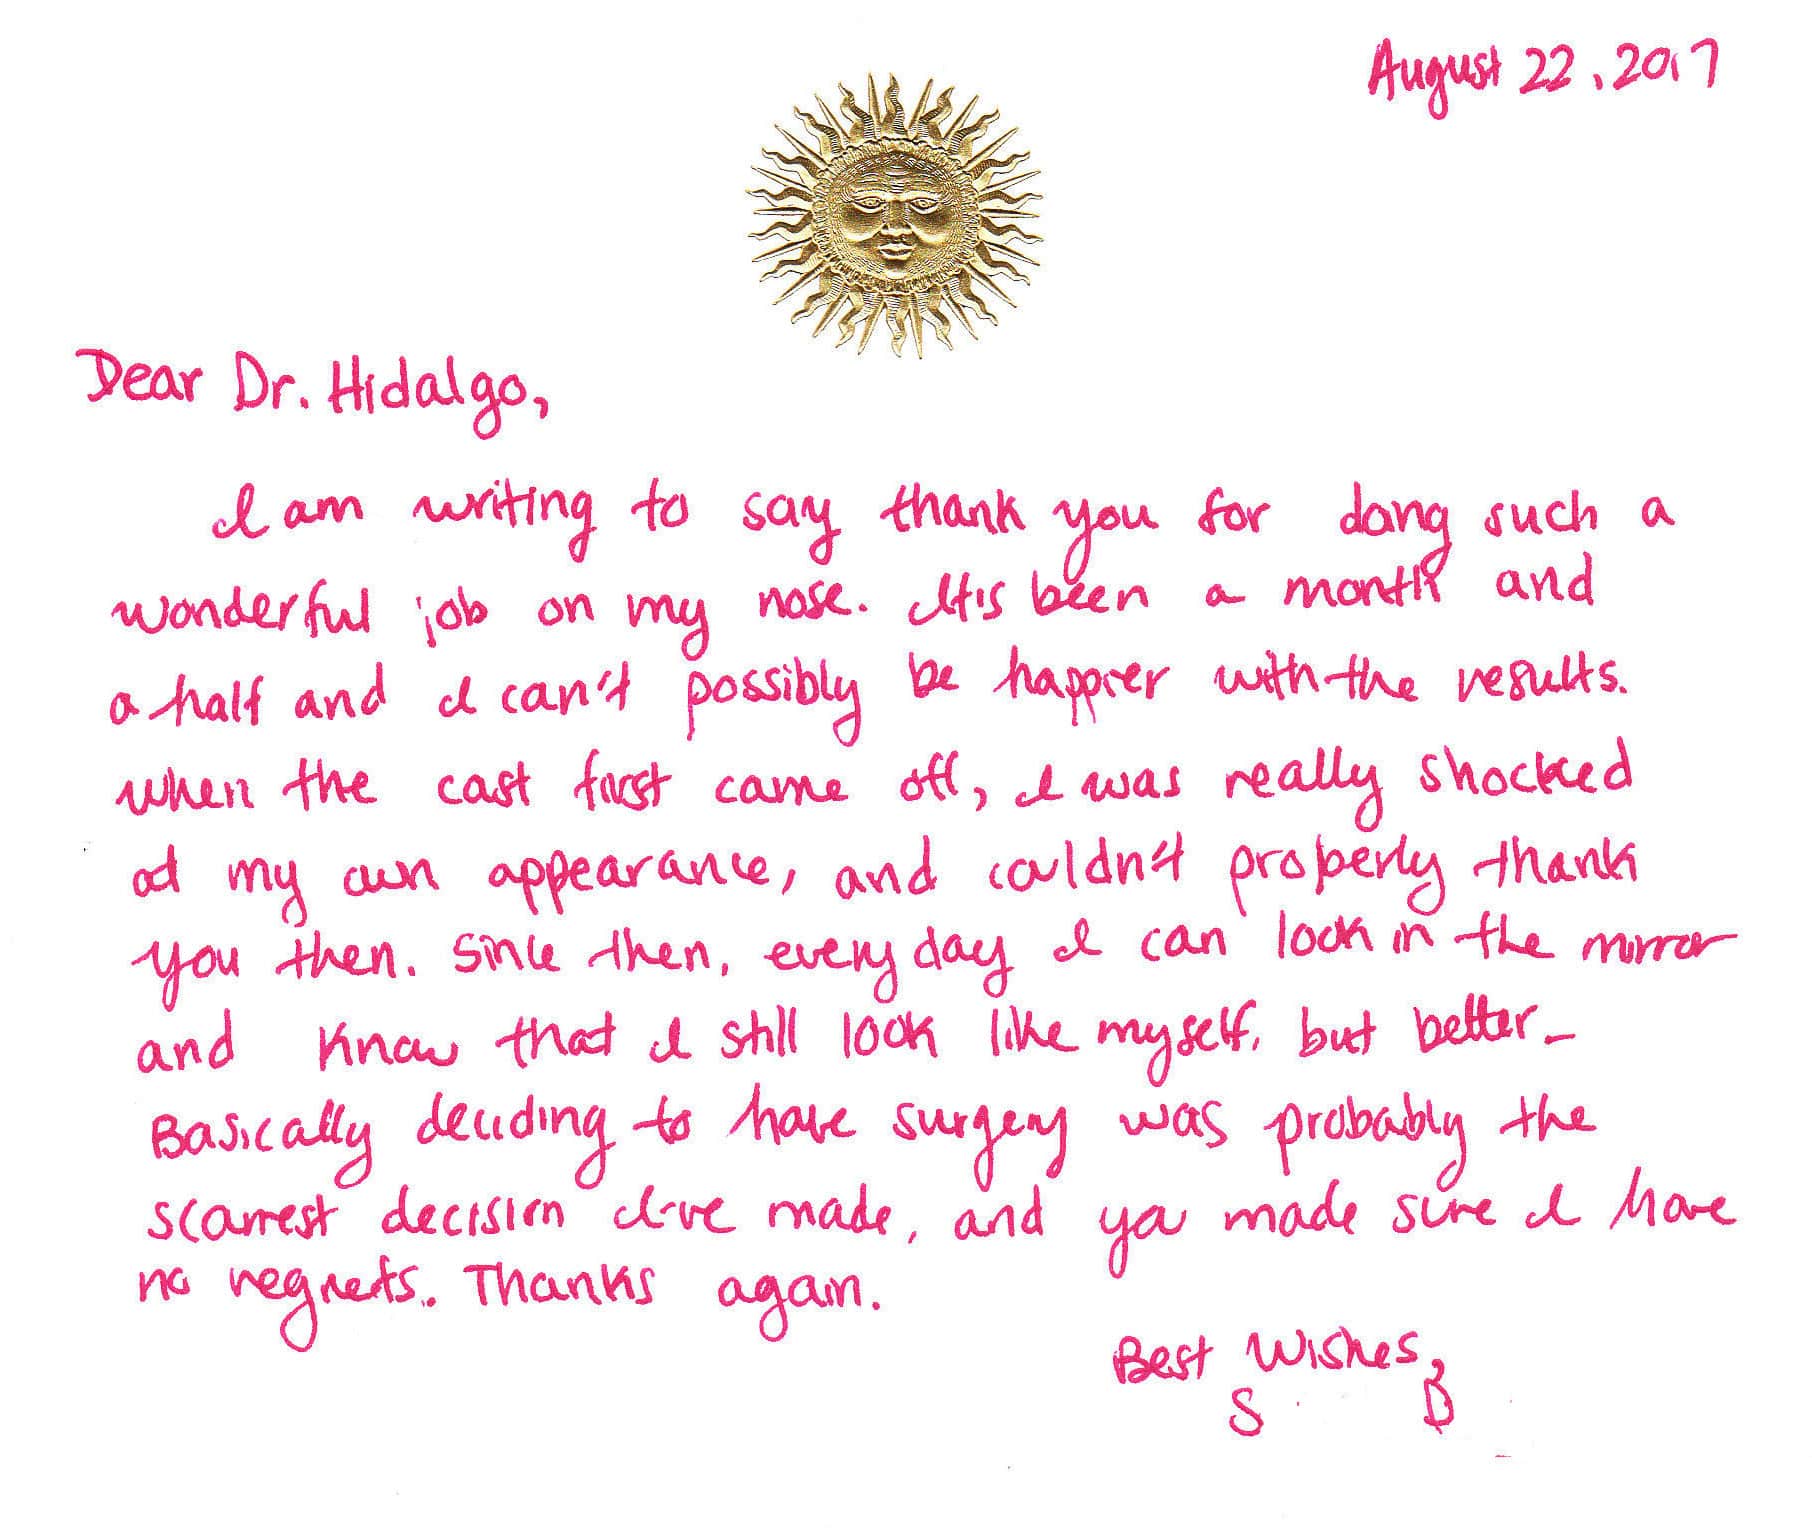 August 22, 2017
Dear Dr. Hidalgo,
I am writing to say thank you for doing such a
wonderful job on my nose. It's been a month and
a half and I can't possibly be happier with the results.
when the cast first came off, I was really shocked
at my own appearance, and couldn't properly thank
you then. Since then, every day I can look in the mirror
and know that I still look like myself, but better.
Basically deciding to have surgery was probably the
scarriest decision I've made, and you made sure I have
no regrets. Thanks again.
Best Wishes,
S B